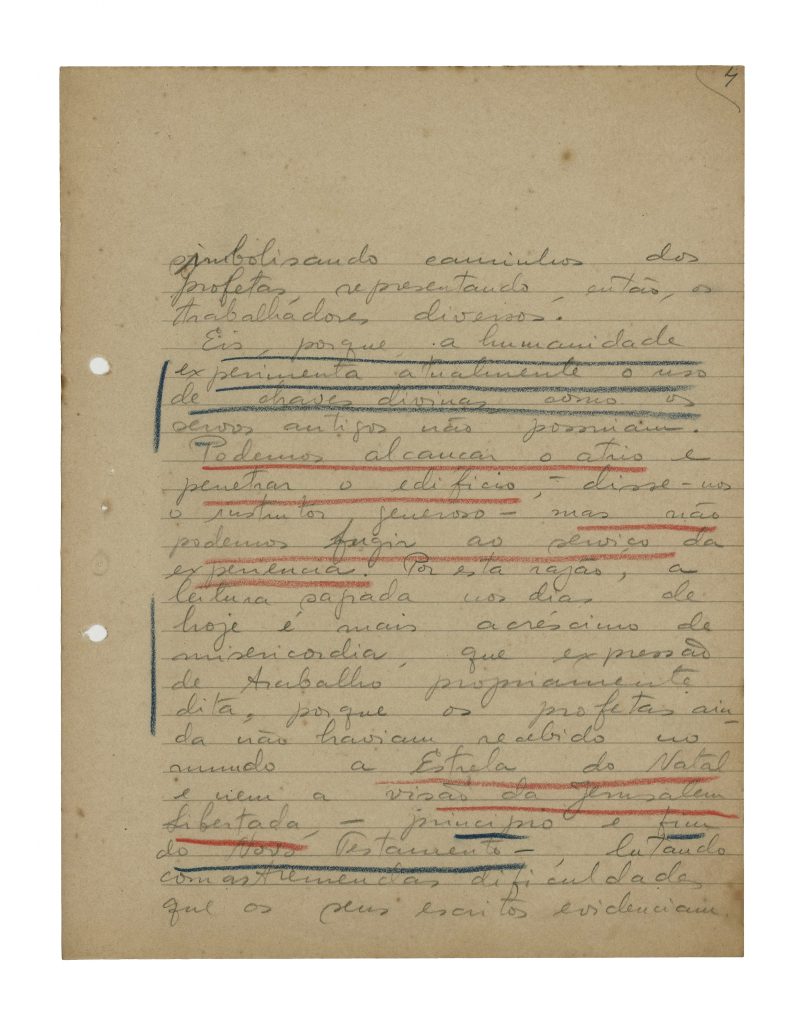 4
simbolisando caminhos dos
profetas, representando, então, os
trabalhadores diversos.
Eis, porque, a humanidade
experimenta atualmente o uso
de chaves divinas como os
servos antigos não possuiam.
Podemos alcançar o atrio e
penetrar o edificio, – disse-nos
o instrutor generoso – mas não
podemos fugir ao serviço da
experiencia. Por esta razão, a
leitura sagrada nos dias de
hoje é mais acréscimo de
misericordia, que expressão
de trabalho propriamente
dita, porque os profetas ain-
da não haviam recebido no
mundo a Estrela do Natal
e nem a visão da Jerusalem
Libertada, – principio e fim
do Novo Testamento –, lutando
com as tremendas dificuldades
que os seus escritos evidenciam.